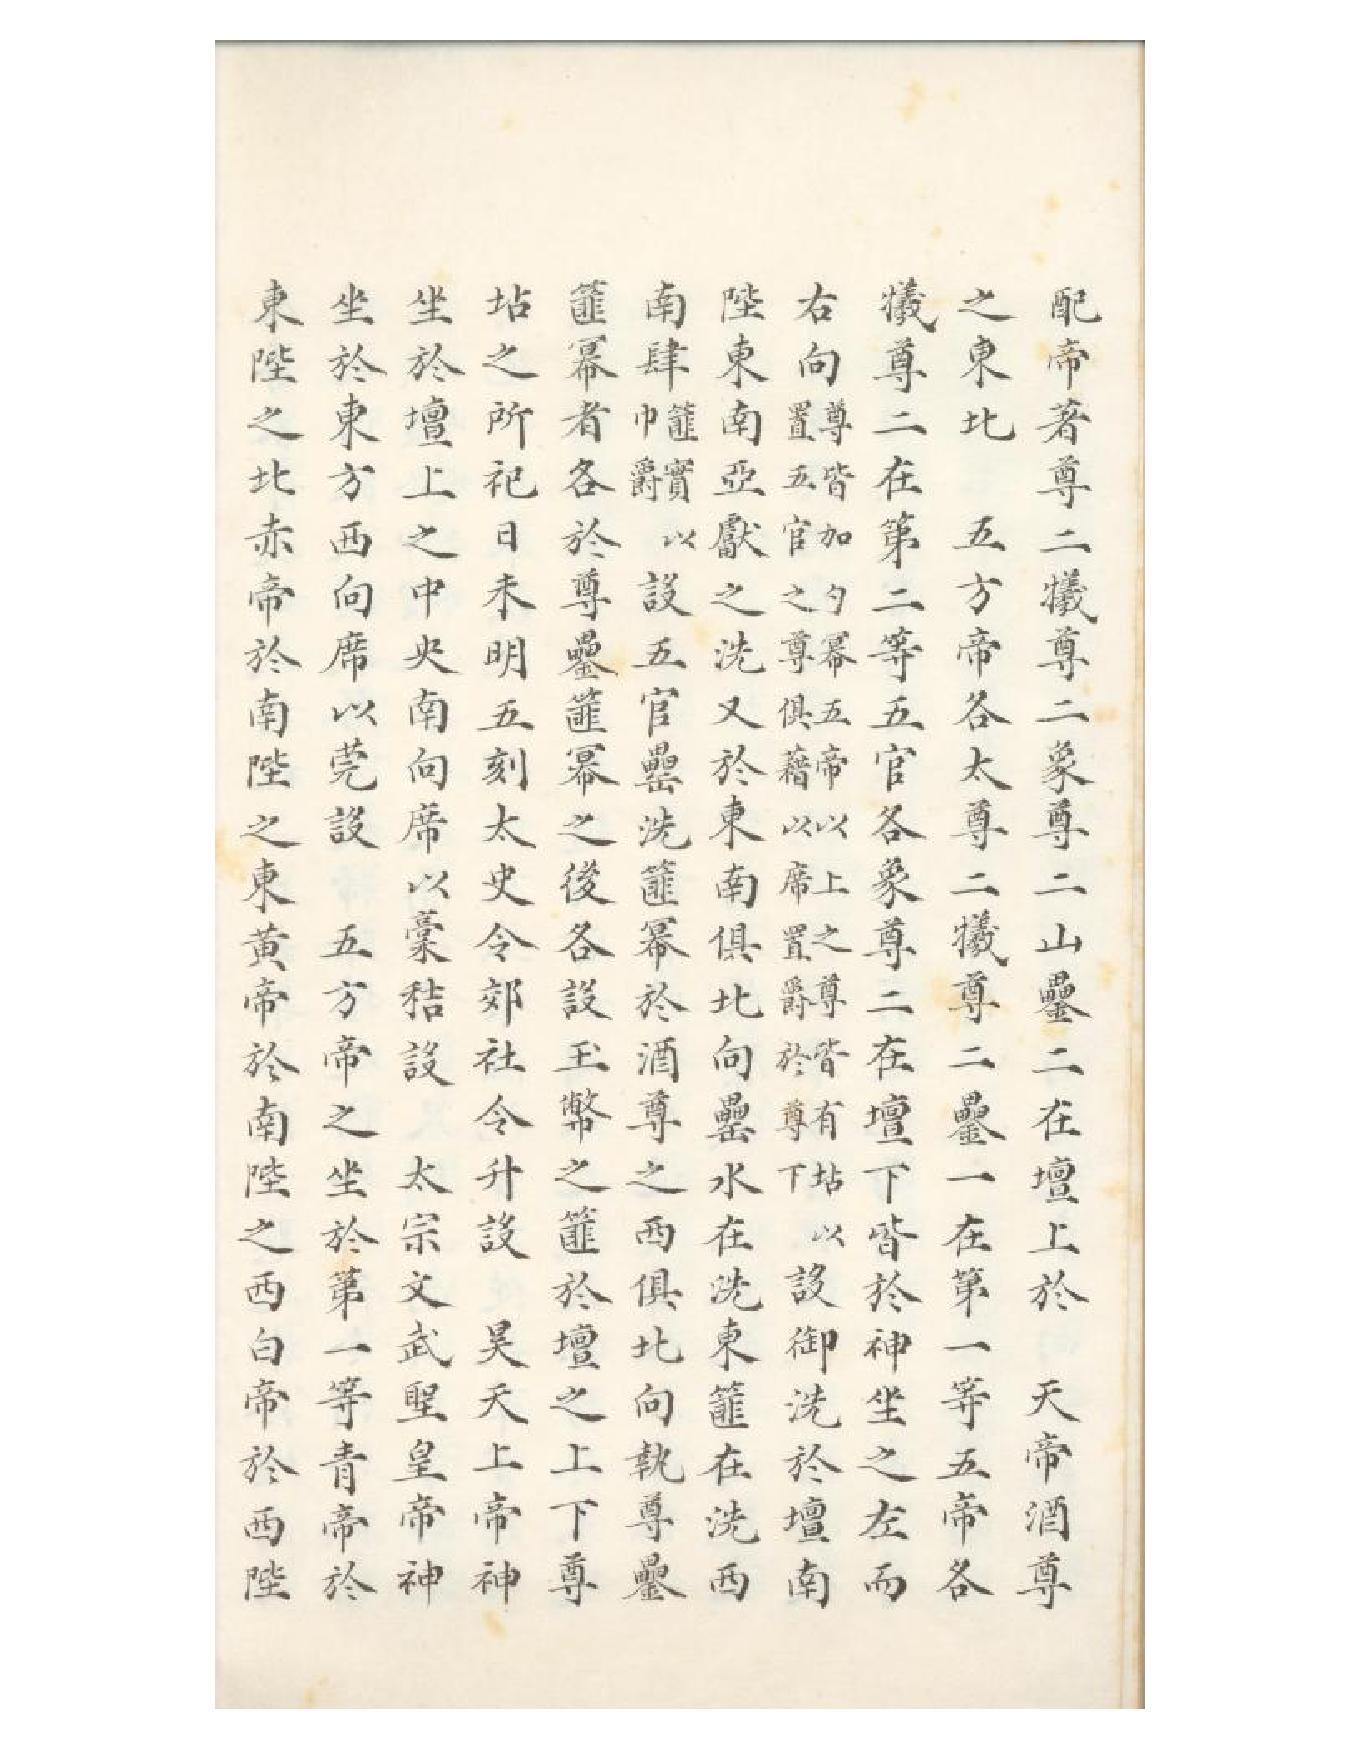 配帝著尊二犧尊二象尊二山罍二在壇上於　天帝酒尊
之東北　五方帝各太尊二犧尊二罍一在第一等五帝各
犧尊二在第二等五官各象尊二在壇下皆於神坐之左而
右向尊皆加勺冪五帝以上之尊皆有坫以置五官之尊俱藉以席置爵於尊下設御洗於壇南
陛東南亞獻之洗又於東南俱北向罍水在洗東篚在洗西
南肆篚實以巾爵設五官罍洗篚冪於酒尊之西俱北向執尊罍
篚冪者各於尊罍篚冪之後各設玉幣之篚於壇之上下尊
坫之所祀日未明五刻太史令郊社令升設　昊天上帝神
坐於壇上之中央南向席以藁秸設　太宗文武聖皇帝神
坐於東方西向席以莞設　五方帝之坐於第一等青帝於
東陛之北赤帝於南陛之東黃帝於南陛之西白帝於西陛